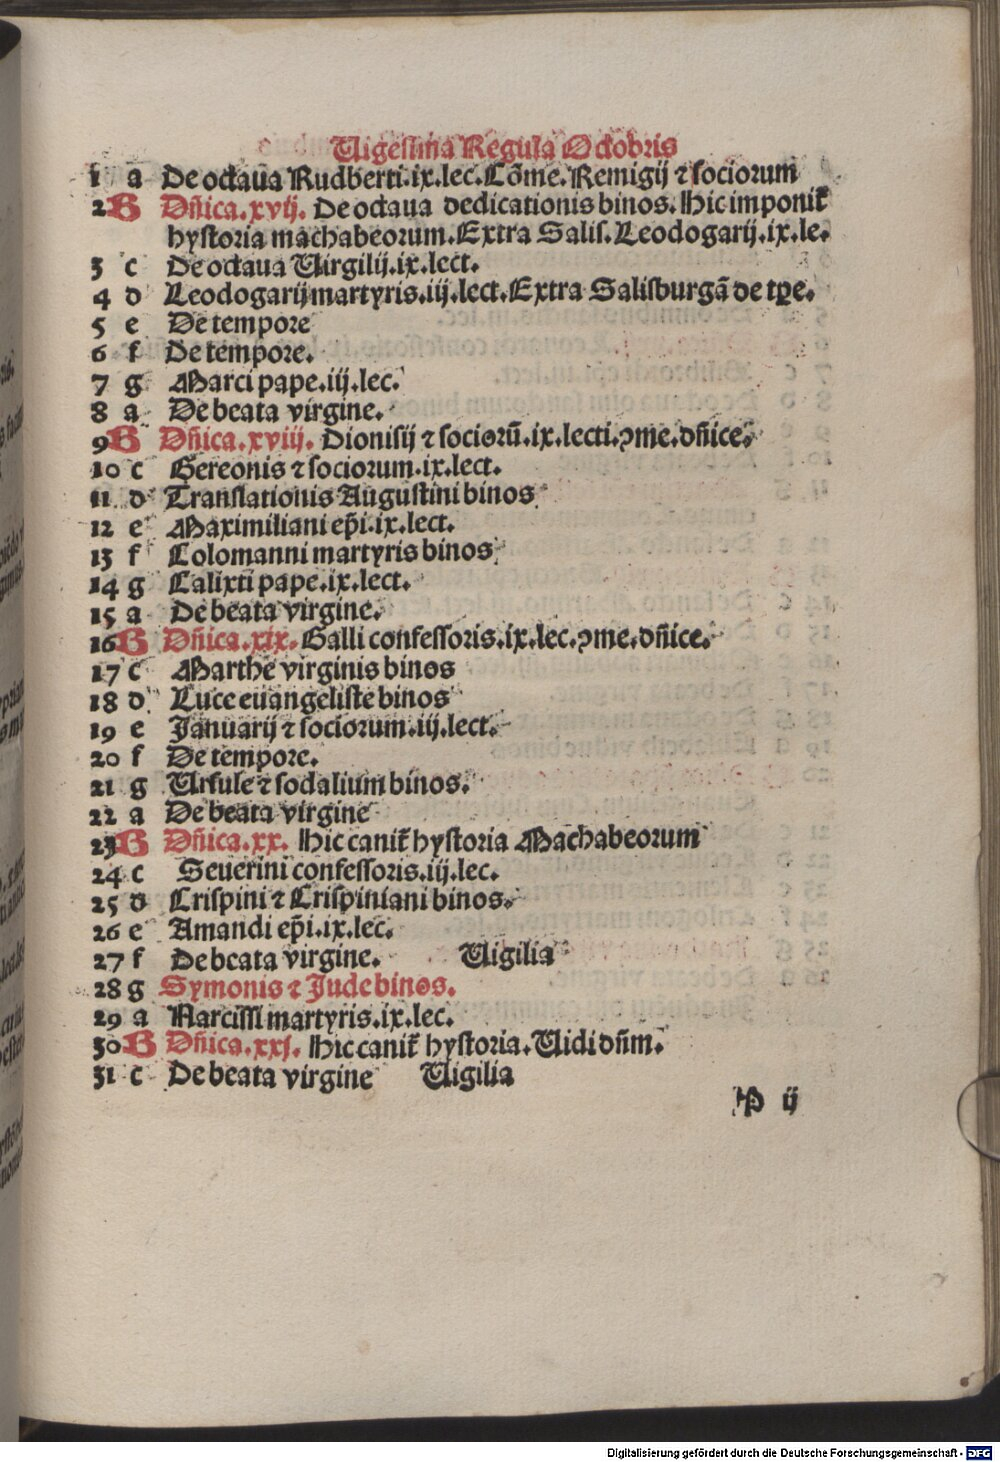 Uigesima Regula Octobris
1 a De octaua Rudberti.ix.lec.Cõme.Remigij ⁊ sociorum
2 B Dñica.xvij. De octaua dedicationis binos. Hic imponit᷑
hystoria machabeorum.Extra Salis.Leodogarij.ix.le.
3 c De octaua Uirgilij.ix.lect.
4 d Leodogarij martyris.iij.lect.Extra Salisburgã de tꝑe.
5 e De tempore
6 f De tempore.
7 g Marci pape.iij.lec.
8 a De beata virgine.
9 B Dñica.xviij. Dionisij ⁊ sociorũ.ix.lecti.ꝯme.dñice.
10 c Gereonis ⁊ sociorum.ix.lect.
11 d Translationis Augustini binos
12 e Maximiliani ep̃i.ix.lect.
13 f Colomanni martyris binos
14 g Calixti pape.ix.lect.
15 a De beata virgine.
16 B Dñica.xix. Galli confessoris.ix.lec.ꝯme.dñice.
17 c Marthe virginis binos
18 d Luce euangeliste binos
19 e Januarij ⁊ sociorum.iij.lect.
20 f De tempore.
21 g Ursule ⁊ sodalium binos.
22 a De beata virgine
23 B Dñica.xx. Hic canit᷑ hystoria Machabeorum
24 c Seuerini confessoris.iij.lec.
25 d Crispini ⁊ Crispiniani binos.
26 e Amandi ep̃i.ix.lec.
27 f De beata virgine. Uigilia
28 g Symonis ⁊ Jude binos.
29 a Narcissi martyris.ix.lec.
30 B Dñica.xxj. Hic canit᷑ hystoria.Uidi dñm.
31 c De beata virgine Uigilia
P ij
Digitalisierung gefördert durch die Deutsche Forschungsgemeinschaft - DFG